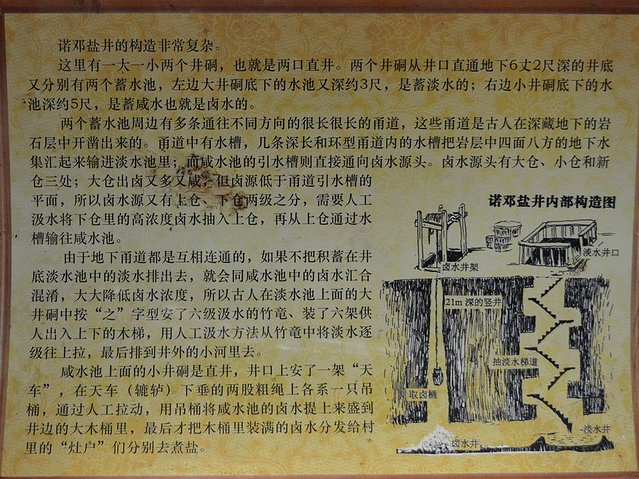 诺邓盐井的构造非常复杂。
这里有一大一小两个井硐，也就是两口直井。两个井硐从井口直通地下6丈2尺深的井底
又分别有两个蓄水池，左边大井硐底下的水池又深约3尺，是蓄淡水的；右边小井硐底下的水
池深约5尺，是蓄咸水也就是卤水的。
两个蓄水池周边有多条通往不同方向的很长很长的甬道，这些甬道是古人在深藏地下的岩
石层中开凿出来的。甬道中有水槽，几条深长和环型甬道内的水槽把岩层中四面八方的地下水
集汇起来输进淡水池里；而咸水池的引水槽则直接通向卤水源头。卤水源头有大仓、小仓和新
仓三处；大仓出卤又多又咸，但卤源低于甬道引水槽的
平面，所以卤水源又有上仓、下仓两级之分，需要人工
汲水将下仓里的高浓度卤水抽入上仓，再从上仓通过水
槽输往咸水池。
由于地下甬道都是互相连通的，如果不把积蓄在井
底淡水池中的淡水排出去，就会同咸水池中的卤水汇合
混淆，大大降低卤水浓度，所以古人在淡水池上面的大
井硐中按“之”字型安了六级汲水的竹竜，装了六架供
人出入上下的木梯，用人工汲水方法从竹竜中将淡水逐
级往上拉，最后排到井外的小河里去。
咸水池上面的小井硐是直井，井口上安了一架“天
车”，在天车（辘轳）下垂的两股粗绳上各系一只吊
桶，通过人工拉动，用吊桶将咸水池的卤水提上来盛到
井边的大木桶里，最后才把木桶里装满的卤水分发给村
里的“灶户”们分别去煮盐。
诺邓盐井内部构造图
淡水井口
卤水井架
21m 深的竖井
抽淡水梯道
取卤桶
卤水井
淡水井